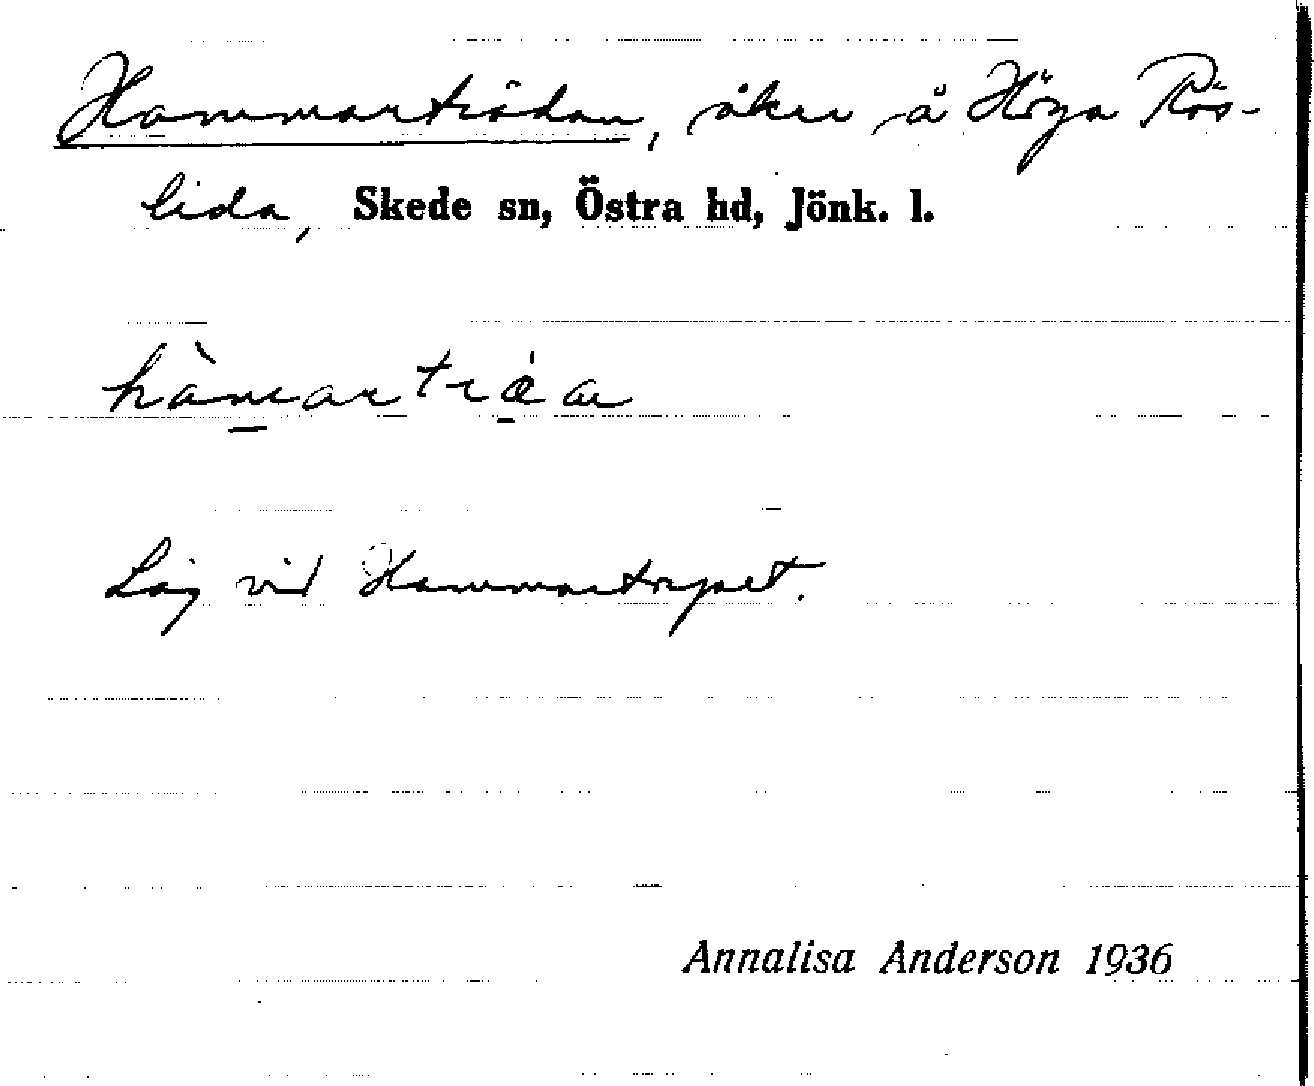 Hammarträdan, åker å Höga Rös-
lida, Skede sn, Östra hd, Jönk. l.
Låg vid Hammartorpet.
Annalisa Anderson 1936